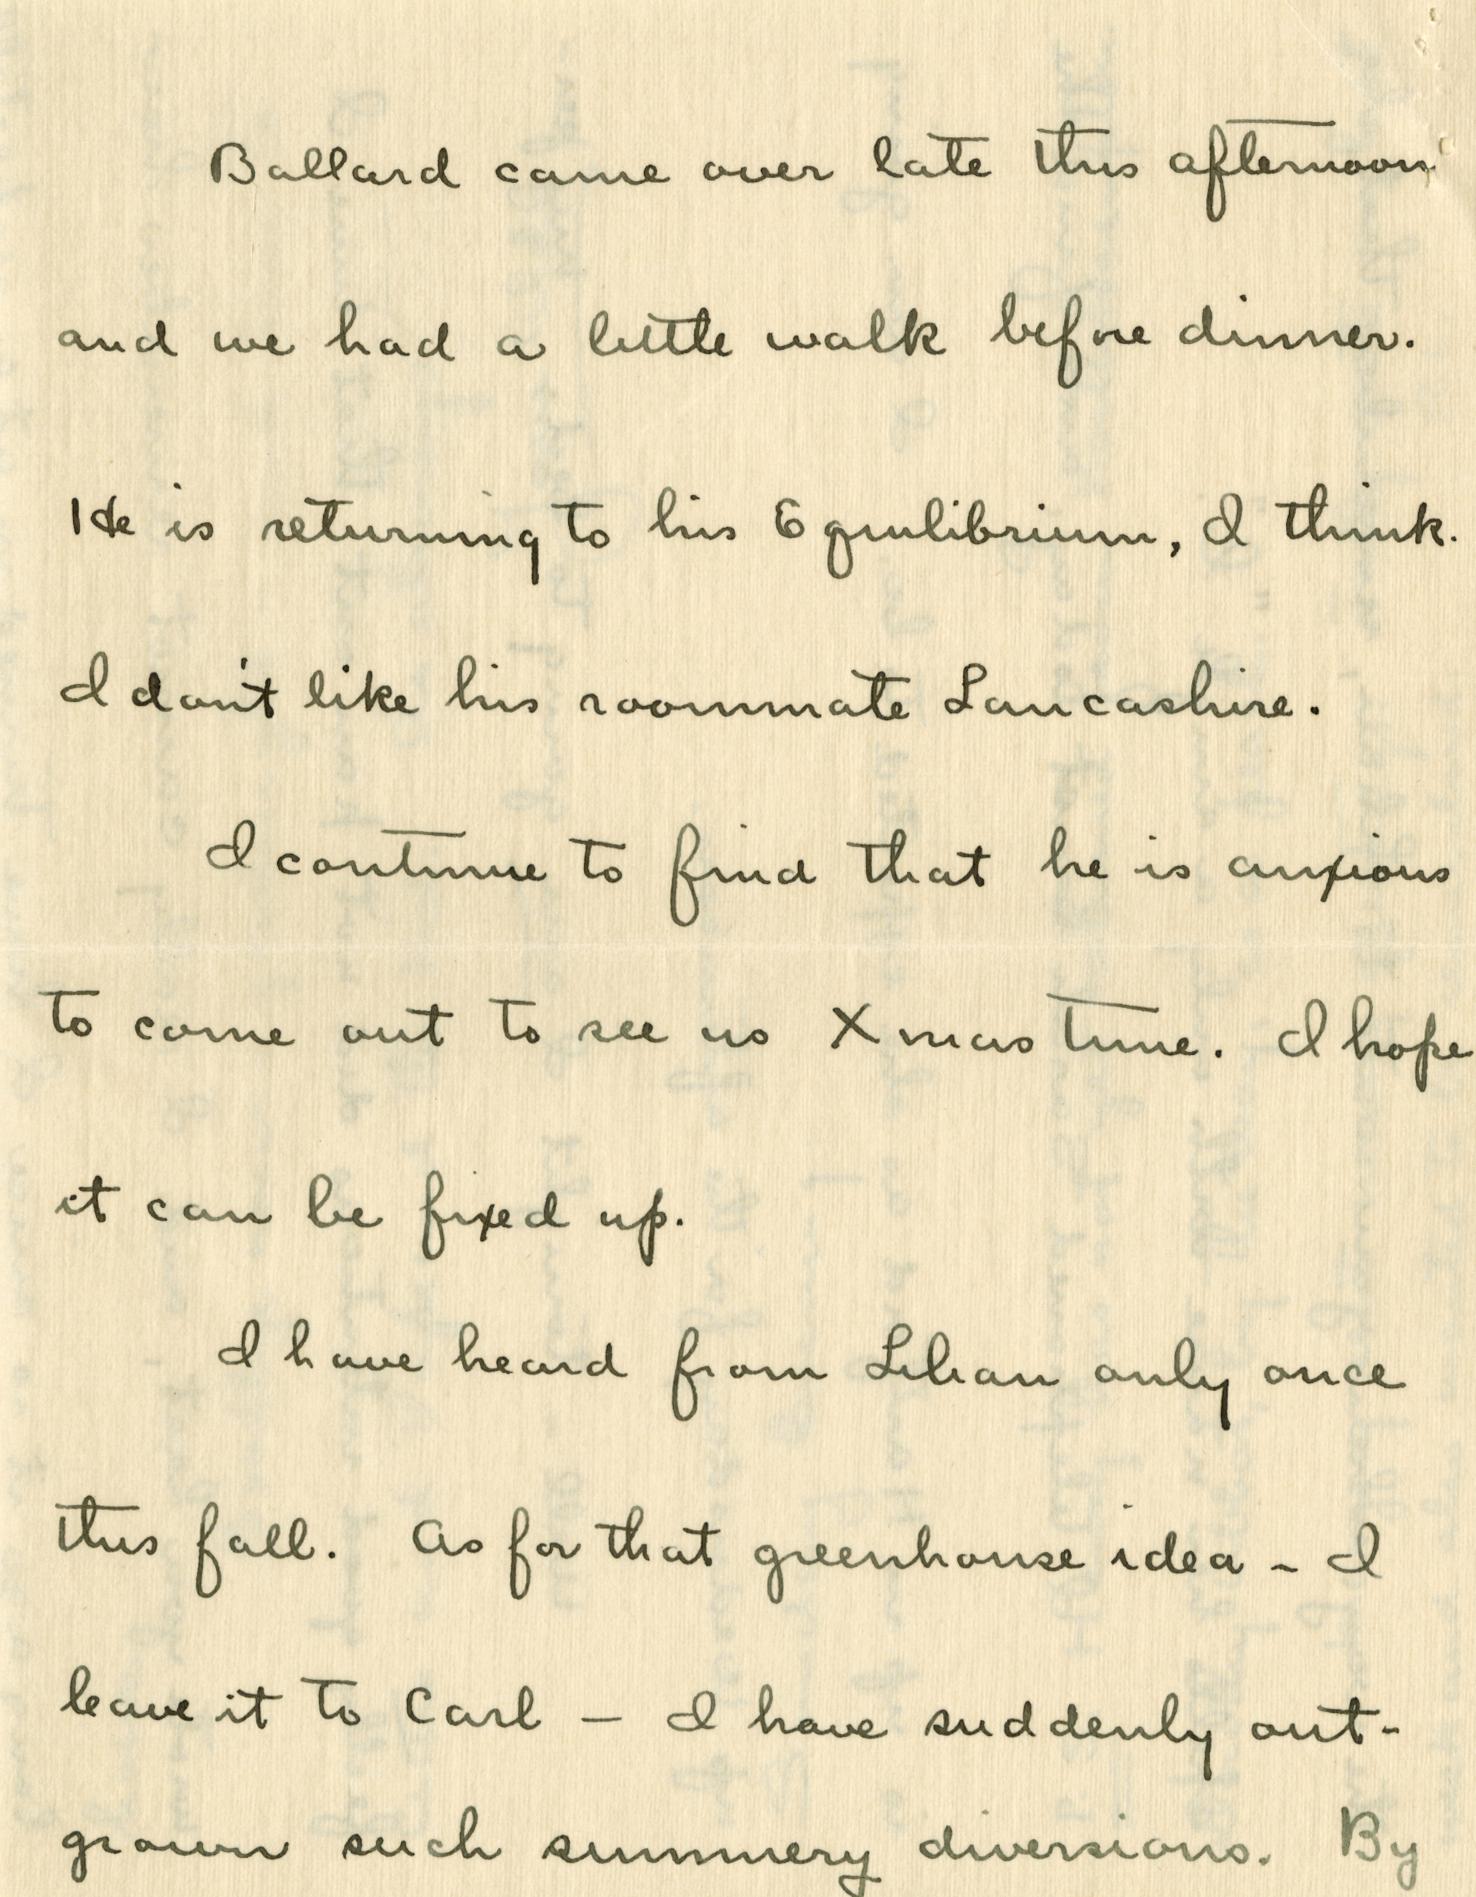 Ballard came over late this afternoon
and we had a little walk before dinner.
He is returning to his Equilibrium, I think.
I don't like his roommate Lancashire.
I continue to find that he is anxious
to come out to see us Xmas time. I hope
it can be fixed up.
I have heard from Lilian only once
this fall. As for that greenhouse idea - I
leave it to Carl — I have suddenly out-
grown such summery diversions. By